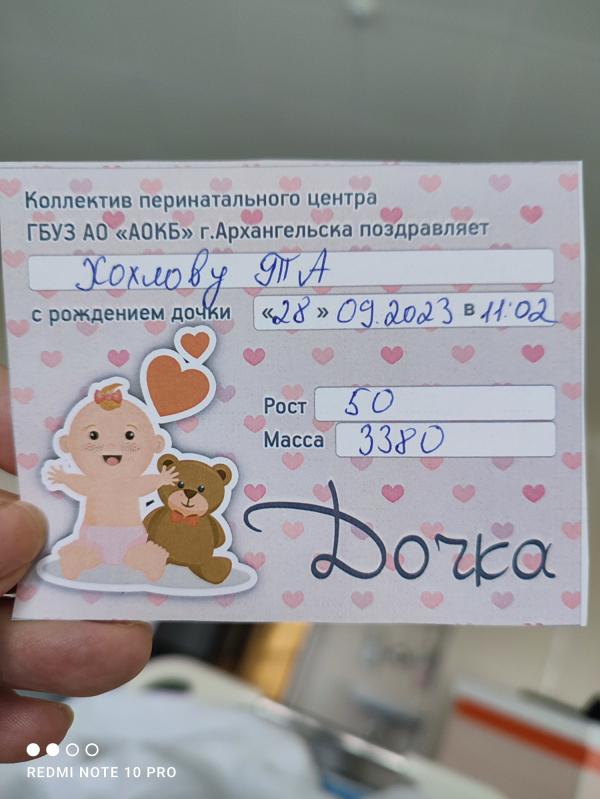 Коллектив перинатального центра
ГБУЗ АО «АОКБ» г.Архангельска поздравляет
Хохлову ЯТА
с рождением дочки «28» 09.2023 в 11:02
Рост 50
Масса 3380
Дочка
REDMI NOTE 10 PRO